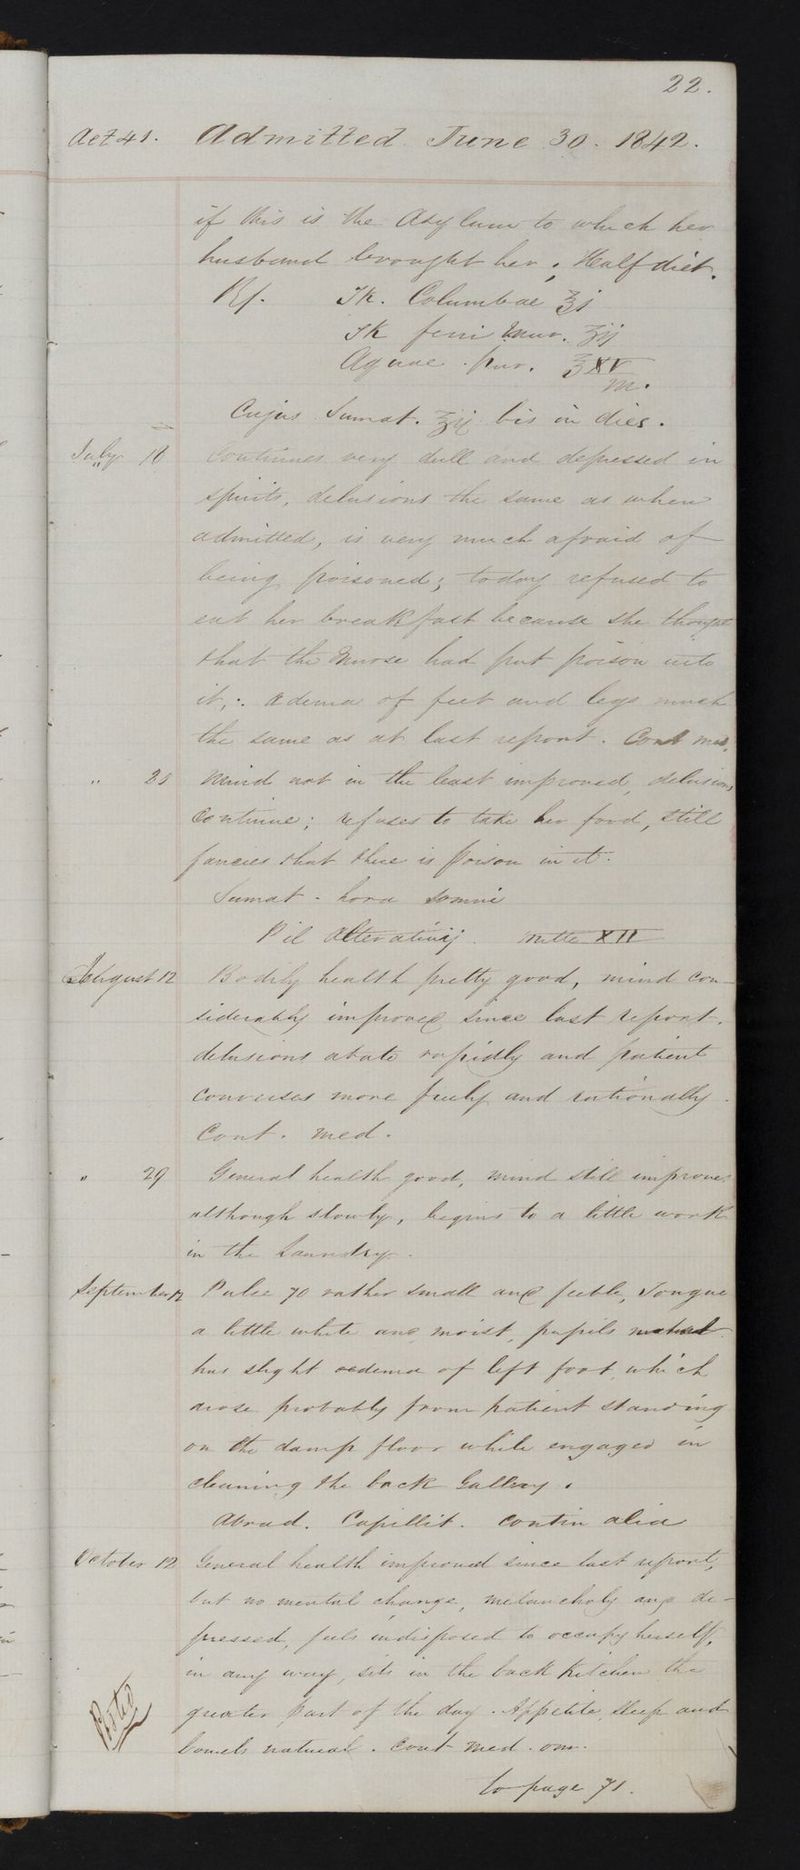 22.
Aet 41. Admitted June 30. 1842.
if this is the Asylum to which her
husband brought her; Half diet.
Rf. Tr. Columbae ℥j
Tr ferri Mur. ʒij
Aquae pur. ℥XV
m.
Cujus Sumat. ℥ij bis in dies.
July 16 Continues very dull and depressed in
spirits, delusions the same as when
admitted, is very much afraid of
being poisoned; today refused to
eat her breakfast because she thought
that the Nurse had put poison into
it,: Ædema of feet and legs much
the same as at last report. Cont med.
" 28 Mind not in the least improved, delusions
continue; refuses to take her food, still
fancies that there is poison in it.
Sumat. hora somni
Pil Alterativ j. mitte XII
August 12 Bodily health pretty good, mind con-
siderably improved since last report.
delusions abate rapidly and patient
converses more freely and rationally.
Cont. med.
" 29 General health good, mind still improves
although slowly, begins to a little work
in the Laundry.
September 12 Pulse 70 rather small and feeble, Tongue
a little white and moist, pupils natural
has slight oedema of left foot, which
arose probably from patient standing
on the damp floor while engaged in
cleaning the back Gallery.
Abrad. Capillit. Contin alia
October 12 General health improved since last report,
but no mental change, melancholy and de-
pressed, feels indisposed to occupy herself,
in any way, sits in the back kitchen the
greater part of the day. Appetite, sleep and
bowels natural. Cont med. om.
Posted
to page 71.